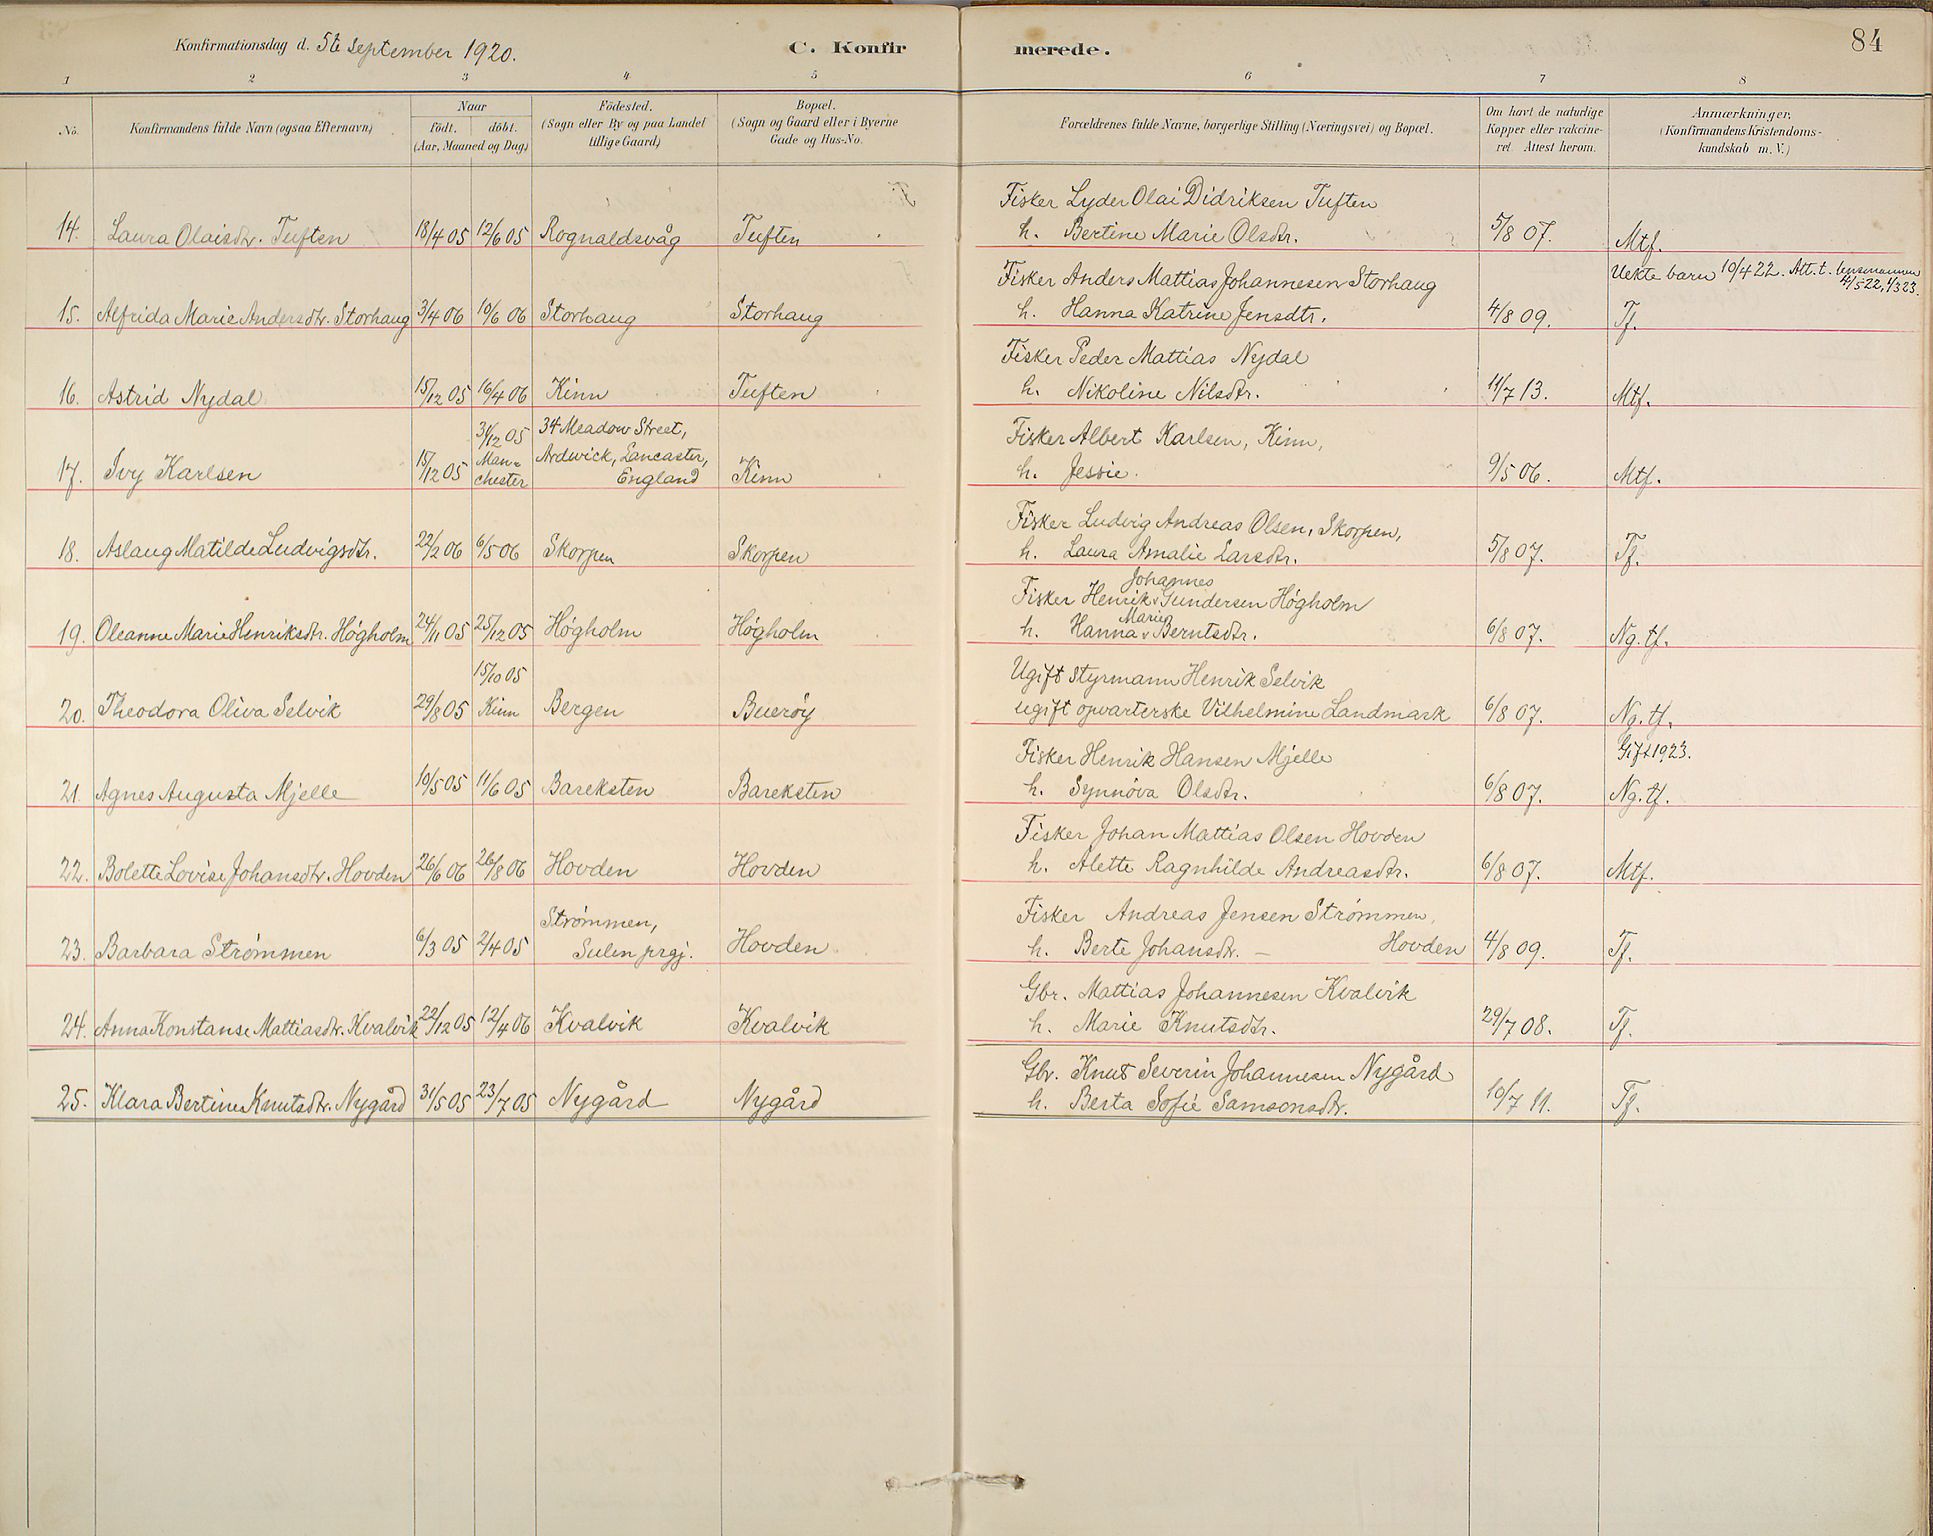 Konfirmationsdag d. 5te September 1920.
C. Konfirmerede.
84
1 2 3 4 5 6 7 8
No.
Konfirmandens fulde Navn (ogsaa Efternavn)
Naar
födt. döbt.
(Aar, Maaned og Dag)
Födested.
(Sogn eller By og paa Landet
tillige Gaard)
Bopæl.
(Sogn og Gaard eller i Byerne
Gade og Hus-No.
Forældrenes fulde Navne, borgerlige Stilling (Næringsvei) og Bopæl.
Om havt de naturlige
Kopper eller vakcine-
ret. Attest herom.
Anmærkninger,
(Konfirmandens Kristendoms-
kundskab m. V.)
Fisker Lyder Olai Didriksen Tuften
14. Laura Olaisdtr. Tuften 18/4 05 12/6 05 Rognaldsvåg Tuften h. Bertine Marie Olsdtr. 5/8 07. Mtf.
Fisker Anders Mattias Johannesen Storhaug Uekte barn 10/4 22. Att. t. lensmannen
4/5 22, 1/3 23.
15. Alfrida Marie Andersdtr. Storhaug 3/4 06 10/6 06 Storhaug Storhaug h. Hanna Katrine Jensdtr. 4/8 09. Tf.
Fisker Peder Mattias Nydal
16. Astrid Nydal 15/12 05 16/4 06 Kinn Tuften h. Nikoline Nilsdtr. 11/7 13. Mtf.
31/12 05 34 Meadow Street, Fisker Albert Karlsen, Kinn,
Man- Ardwick, Lancaster,
17. Ivy Karlsen 15/12 05 chester England Kinn h. Jessie. 9/5 06. Mtf.
Fisker Ludvig Andreas Olsen, Skorpen,
18. Aslaug Matilde Ludvigsdtr. 22/2 06 6/5 06 Skorpen Skorpen h. Laura Amalie Larsdtr. 5/8 07. Tf.
Johannes
Fisker Henrik Gundersen Högholm
Marie
19. Oleanne Marie Henriksdtr. Högholm 24/11 05 25/12 05 Högholm Högholm h. Hanna Berntsdtr. 6/8 07. Ng. tf.
15/10 05 Ugift Styrmann Henrik Selvik
20. Theodora Oliva Selvik 29/8 05 Kinn Bergen Bueröy ugift opvarterske Vilhelmine Landmark 6/8 07. Ng. tf.
Fisker Henrik Hansen Mjelle Gift 1923.
21. Agnes Augusta Mjelle 10/5 05 11/6 05 Bareksten Bareksten h. Synnöva Olsdtr. 6/8 07. Ng. tf.
Fisker Johan Mattias Olsen Hovden
22. Bolette Lovise Johansdtr. Hovden 26/6 06 26/8 06 Hovden Hovden h. Alette Ragnhilde Andreasdtr. 6/8 07. Mtf.
Strömmen, Fisker Andreas Jensen Strömmen,
23. Barbara Strömmen 6/3 05 2/4 05 Sulen prgj. Hovden h. Berte Johansdtr. – Hovden 4/8 09. Tf.
Gbr. Mattias Johannesen Kvalvik
24. Anna Konstanse Mattiasdtr. Kvalvik 22/12 05 12/4 06 Kvalvik Kvalvik h. Marie Knutsdtr. 29/7 08. Tf.
Gbr. Knut Severin Johannesen Nygård
25. Klara Bertine Knutsdtr. Nygård 31/5 05 23/7 05 Nygård Nygård h. Berta Sofie Samsonsdtr. 10/7 11. Tf.